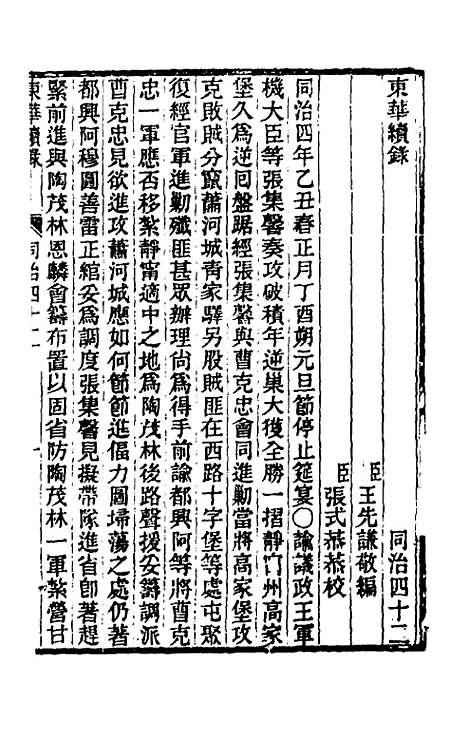 東華續錄 同治四十二
臣王先謙敬編
臣張式恭恭校
同治四年乙丑春正月丁酉朔元旦節停止筵宴○諭議政王軍
機大臣等張集馨奏攻破積年逆巢大獲全勝一摺靜甯州高家
堡久爲逆回盤踞經張集馨與曹克忠會同進勦當將高家堡攻
克敗賊分竄蕭河城靑家驛另股賊匪在西路十字堡等處屯聚
復經官軍進勦殲匪甚眾辦理尚爲得手前諭都興阿等將曹克
忠一軍應否移紮靜甯適中之地爲陶茂林後路聲援妥籌調派
曹克忠見欲進攻蕭河城應如何節節進偪力圖埽蕩之處仍著
都興阿穆圖善雷正綰妥爲調度張集馨見擬帶隊進省卽著趕
緊前進與陶茂林恩麟會籌布置以固省防陶茂林一軍紮營甘
東華續錄 同治四十二 一